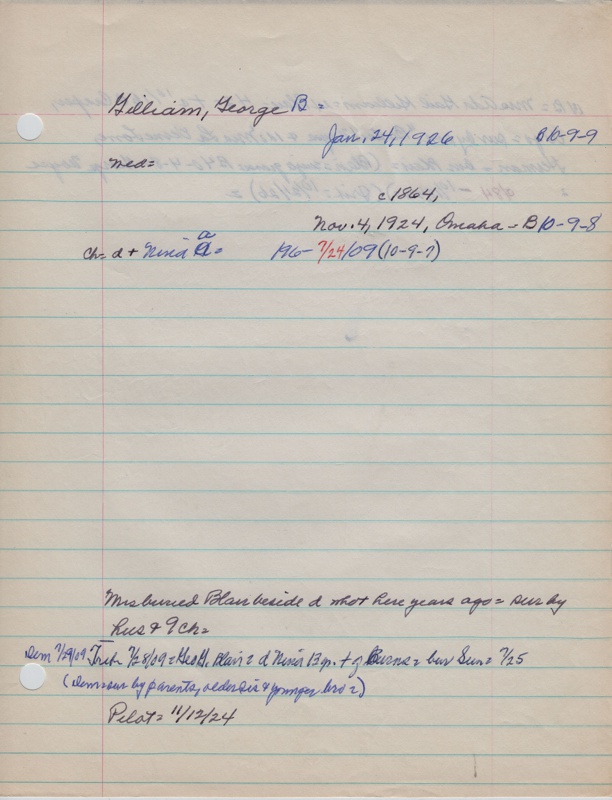 Gilliam, George B =
Jan. 24, 1926 B10-9-9
med=
c 1864,
Nov. 4, 1924, Omaha - B10-9-8
ch= d + Nina a = 196- 7/24/09 (10-9-7)
Mrs buried Blair beside d who + here years ago = sur by
hus + 9 ch=
Dem 7/29/09 Trib 7/28/09 = Geo G. Blair = d Nina 13 yr. + of Burns = bur Sun = 7/25
(Dem = sur by parents, older sis + younger bro =)
Pilot = 11/12/24